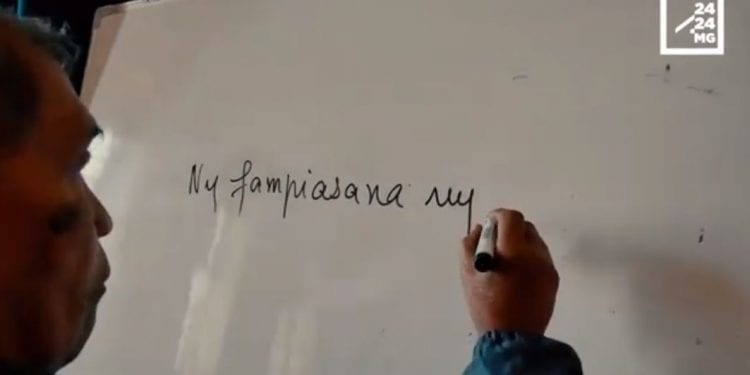 24
24
MG
Ny fampiasana ny